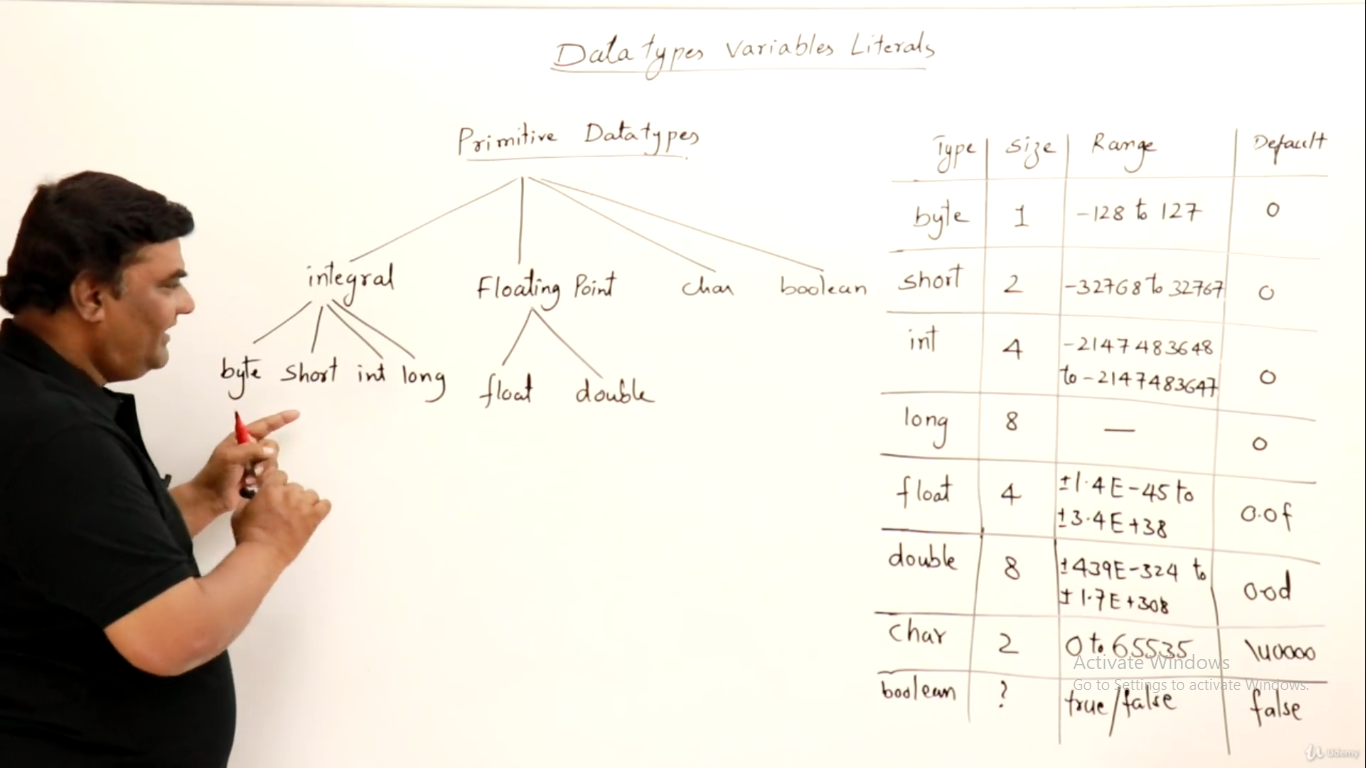 Datatypes Variables Literals
Primitive Datatypes
integral Floating Point char boolean
byte short int long float double
Type Size Range Default
byte 1 -128 to 127 0
short 2 -32768 to 32767 0
int 4 -2147483648
to -2147483647 0
long 8 — 0
float 4 ±1.4E-45 to
±3.4E+38 0.0f
double 8 ±439E-324 to
±1.7E+308 0.0d
char 2 0 to 65535 \u0000
boolean ? true/false false
Activate Windows
Go to Settings to activate Windows.
Udemy